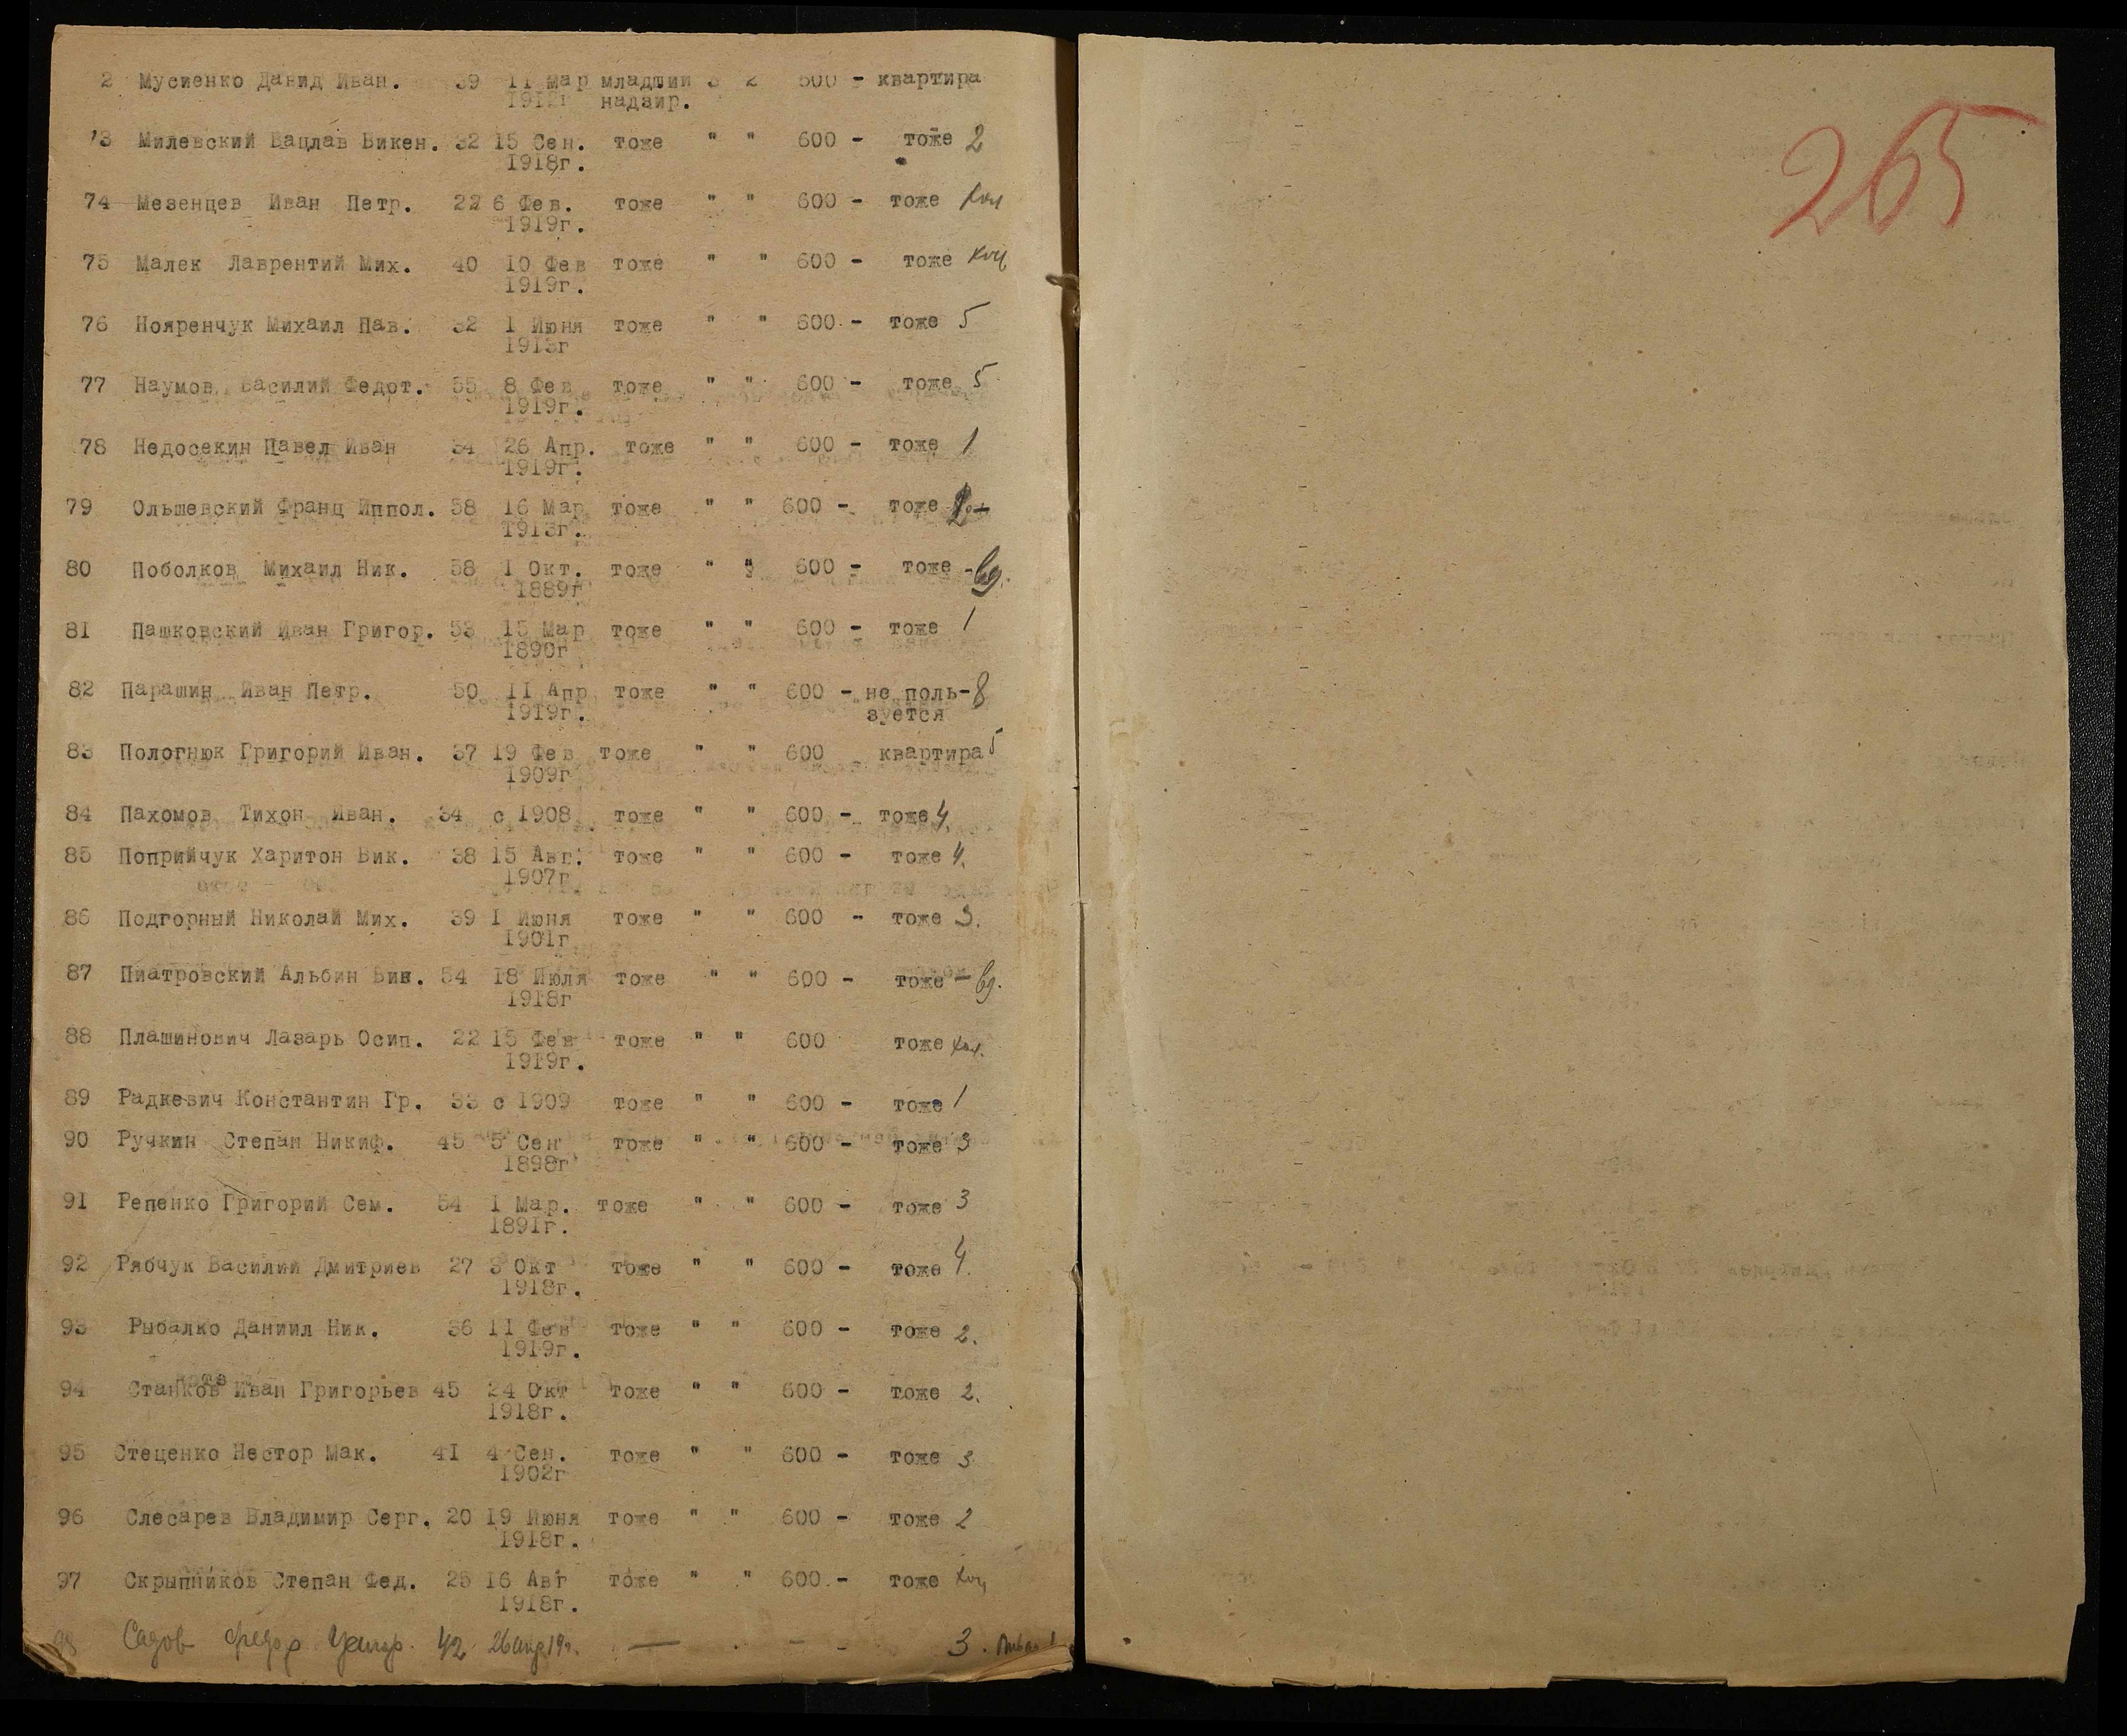 2 Мусиенко Давид Иван. 39 11 Мар младший 3 2 600 - квартира
надзир.
73 Милевский Вацлав Викен. 32 15 Сен. тоже " " 600 - тоже 2
1918г.
74 Мезенцев Иван Петр. 22 6 Фев. тоже " " 600 - тоже хол
1919г.
75 Малек Лаврентий Мих. 40 10 Фев тоже " " 600 - тоже хол
1919г.
76 Нояренчук Михаил Пав. 32 1 Июня тоже " " 600 - тоже 5
1913г
77 Наумов Василий Федот. 55 8 Фев тоже " " 600 - тоже 5
1919г.
78 Недосекин Павел Иван 34 26 Апр. тоже " " 600 - тоже 1
1919г.
79 Ольшевский Франц Иппол. 58 16 Мар тоже " " 600 - тоже
1913г.
80 Поболков Михаил Ник. 58 1 Окт. тоже " " 600 - тоже - вд.
1889г
81 Пашковский Иван Григор. 53 15 Мар тоже " " 600 - тоже 1
1890г
82 Парашин Иван Петр. 50 11 Апр тоже " " 600 - не поль- 8
1919г. зуется
83 Пологнюк Григорий Иван. 37 19 Фев тоже " " 600 квартира 5
1909г
84 Пахомов Тихон Иван. 34 с 1908 тоже " " 600 - тоже 4.
85 Поприйчук Харитон Вик. 38 15 Авг. тоже " " 600 - тоже 4.
1907г
86 Подгорный Николай Мих. 39 1 Июня тоже " " 600 - тоже 3.
1901г
87 Пиатровский Альбин Вик. 54 18 Июля тоже " " 600 - тоже - вд.
1918г
88 Плашинович Лазарь Осип. 22 15 Фев тоже " " 600 тоже хол.
1919г.
89 Радкевич Константин Гр. 33 с 1909 тоже " " 600 - тоже 1
90 Ручкин Степан Никиф. 45 5 Сен тоже " " 600 - тоже 3
1898г
91 Репенко Григорий Сем. 54 1 Мар. тоже " " 600 - тоже 3
1891г.
92 Рябчук Василий Дмитриев 27 3 Окт тоже " " 600 - тоже 4.
1918г.
93 Рыбалко Даниил Ник. 36 11 Фев тоже " " 600 - тоже 2.
1919г.
94 Станков Иван Григорьев 45 24 Окт тоже " " 600 - тоже 2.
1918г.
95 Стеценко Нестор Мак. 41 4 Сен. тоже " " 600 - тоже 3
1902г
96 Слесарев Владимир Серг. 20 19 Июня тоже " " 600 - тоже 2
1918г.
97 Скрыпников Степан Фед. 25 16 Авг тоже " " 600 - тоже хол
1918г.
98 Садов Федор 42 26 апр 19г. — - - 3.
265